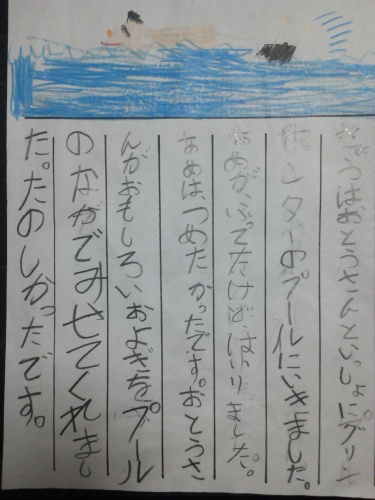 きょうはおとうさんといっしょにグリーン
センターのプールにいきました。
あめがふってたけどはいりました。
あめは、つめたかったです。おとうさ
んがおもしろいおよぎをプール
のなかでみせてくれまし
た。たのしかったです。